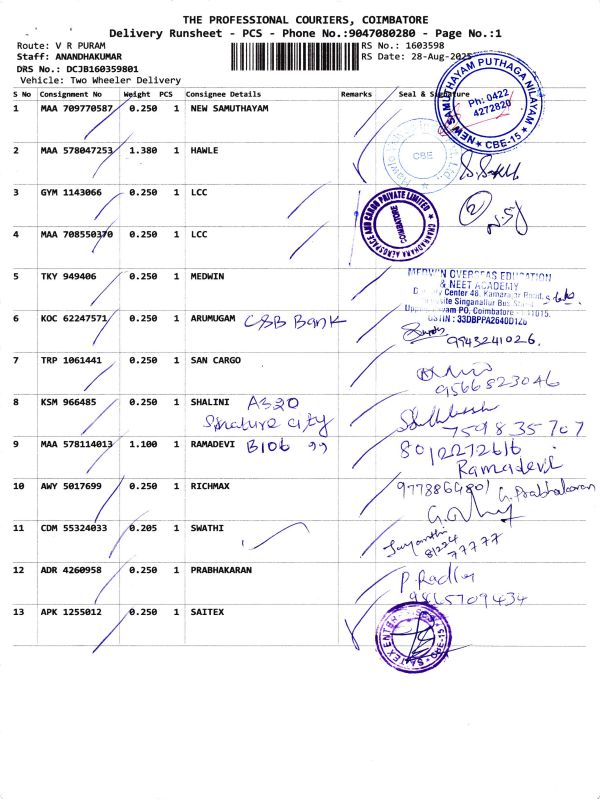 THE PROFESSIONAL COURIERS, COIMBATORE
Delivery Runsheet - PCS - Phone No.:9047080280 - Page No.:1
Route: V R PURAM RS No.: 1603598
Staff: ANANDHAKUMAR RS Date: 28-Aug-2025
DRS No.: DCJB160359801
Vehicle: Two Wheeler Delivery
S No Consignment No Weight PCS Consignee Details Remarks Seal & Signature
NEW SAMUTHAYAM PUTHAGA NILAYAM
Ph: 0422
4272820
CBE-15
1 MAA 709770587 0.250 1 NEW SAMUTHAYAM
2 MAA 578047253 1.380 1 HAWLE
CBE
3 GYM 1143066 0.250 1 LCC
CHAKRADHARA AEROSPACE AND CARGO PRIVATE LIMITED
COIMBATORE
4 MAA 708550370 0.250 1 LCC
5 TKY 949406 0.250 1 MEDWIN
MEDWIN OVERSEAS EDUCATION
& NEET ACADEMY
Center 48, Kamarajar Road,
Opposite Singanallur Bus Stand
PO, Coimbatore - 641015.
GSTIN : 33DBPPA2640D1ZU
6 KOC 62247571 0.250 1 ARUMUGAM CSB Bank
9943241026.
7 TRP 1061441 0.250 1 SAN CARGO
9566823046
8 KSM 966485 0.250 1 SHALINI A320
city
7598357 07
9 MAA 578114013 1.100 1 RAMADEVI B106 99
8012272616
Ramadevi
10 AWY 5017699 0.250 1 RICHMAX
G. Prabhakaran
11 CDM 55324033 0.205 1 SWATHI
Jayanthi
81224
77777
12 ADR 4260958 0.250 1 PRABHAKARAN
9865709434
13 APK 1255012 0.250 1 SAITEX